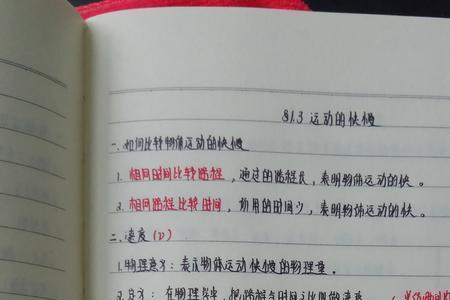 §1.3 运动的快慢
一、如何比较物体运动的快慢
1. 相同时间比较路程，通过的路程长，表明物体运动的快。
2. 相同路程比较时间，所用的时间少，表明物体运动的快。
二、速度(v)
1. 物理意义：表示物体运动快慢的物理量。
2. 定义：在物理学中，把路程与时间之比叫做速度